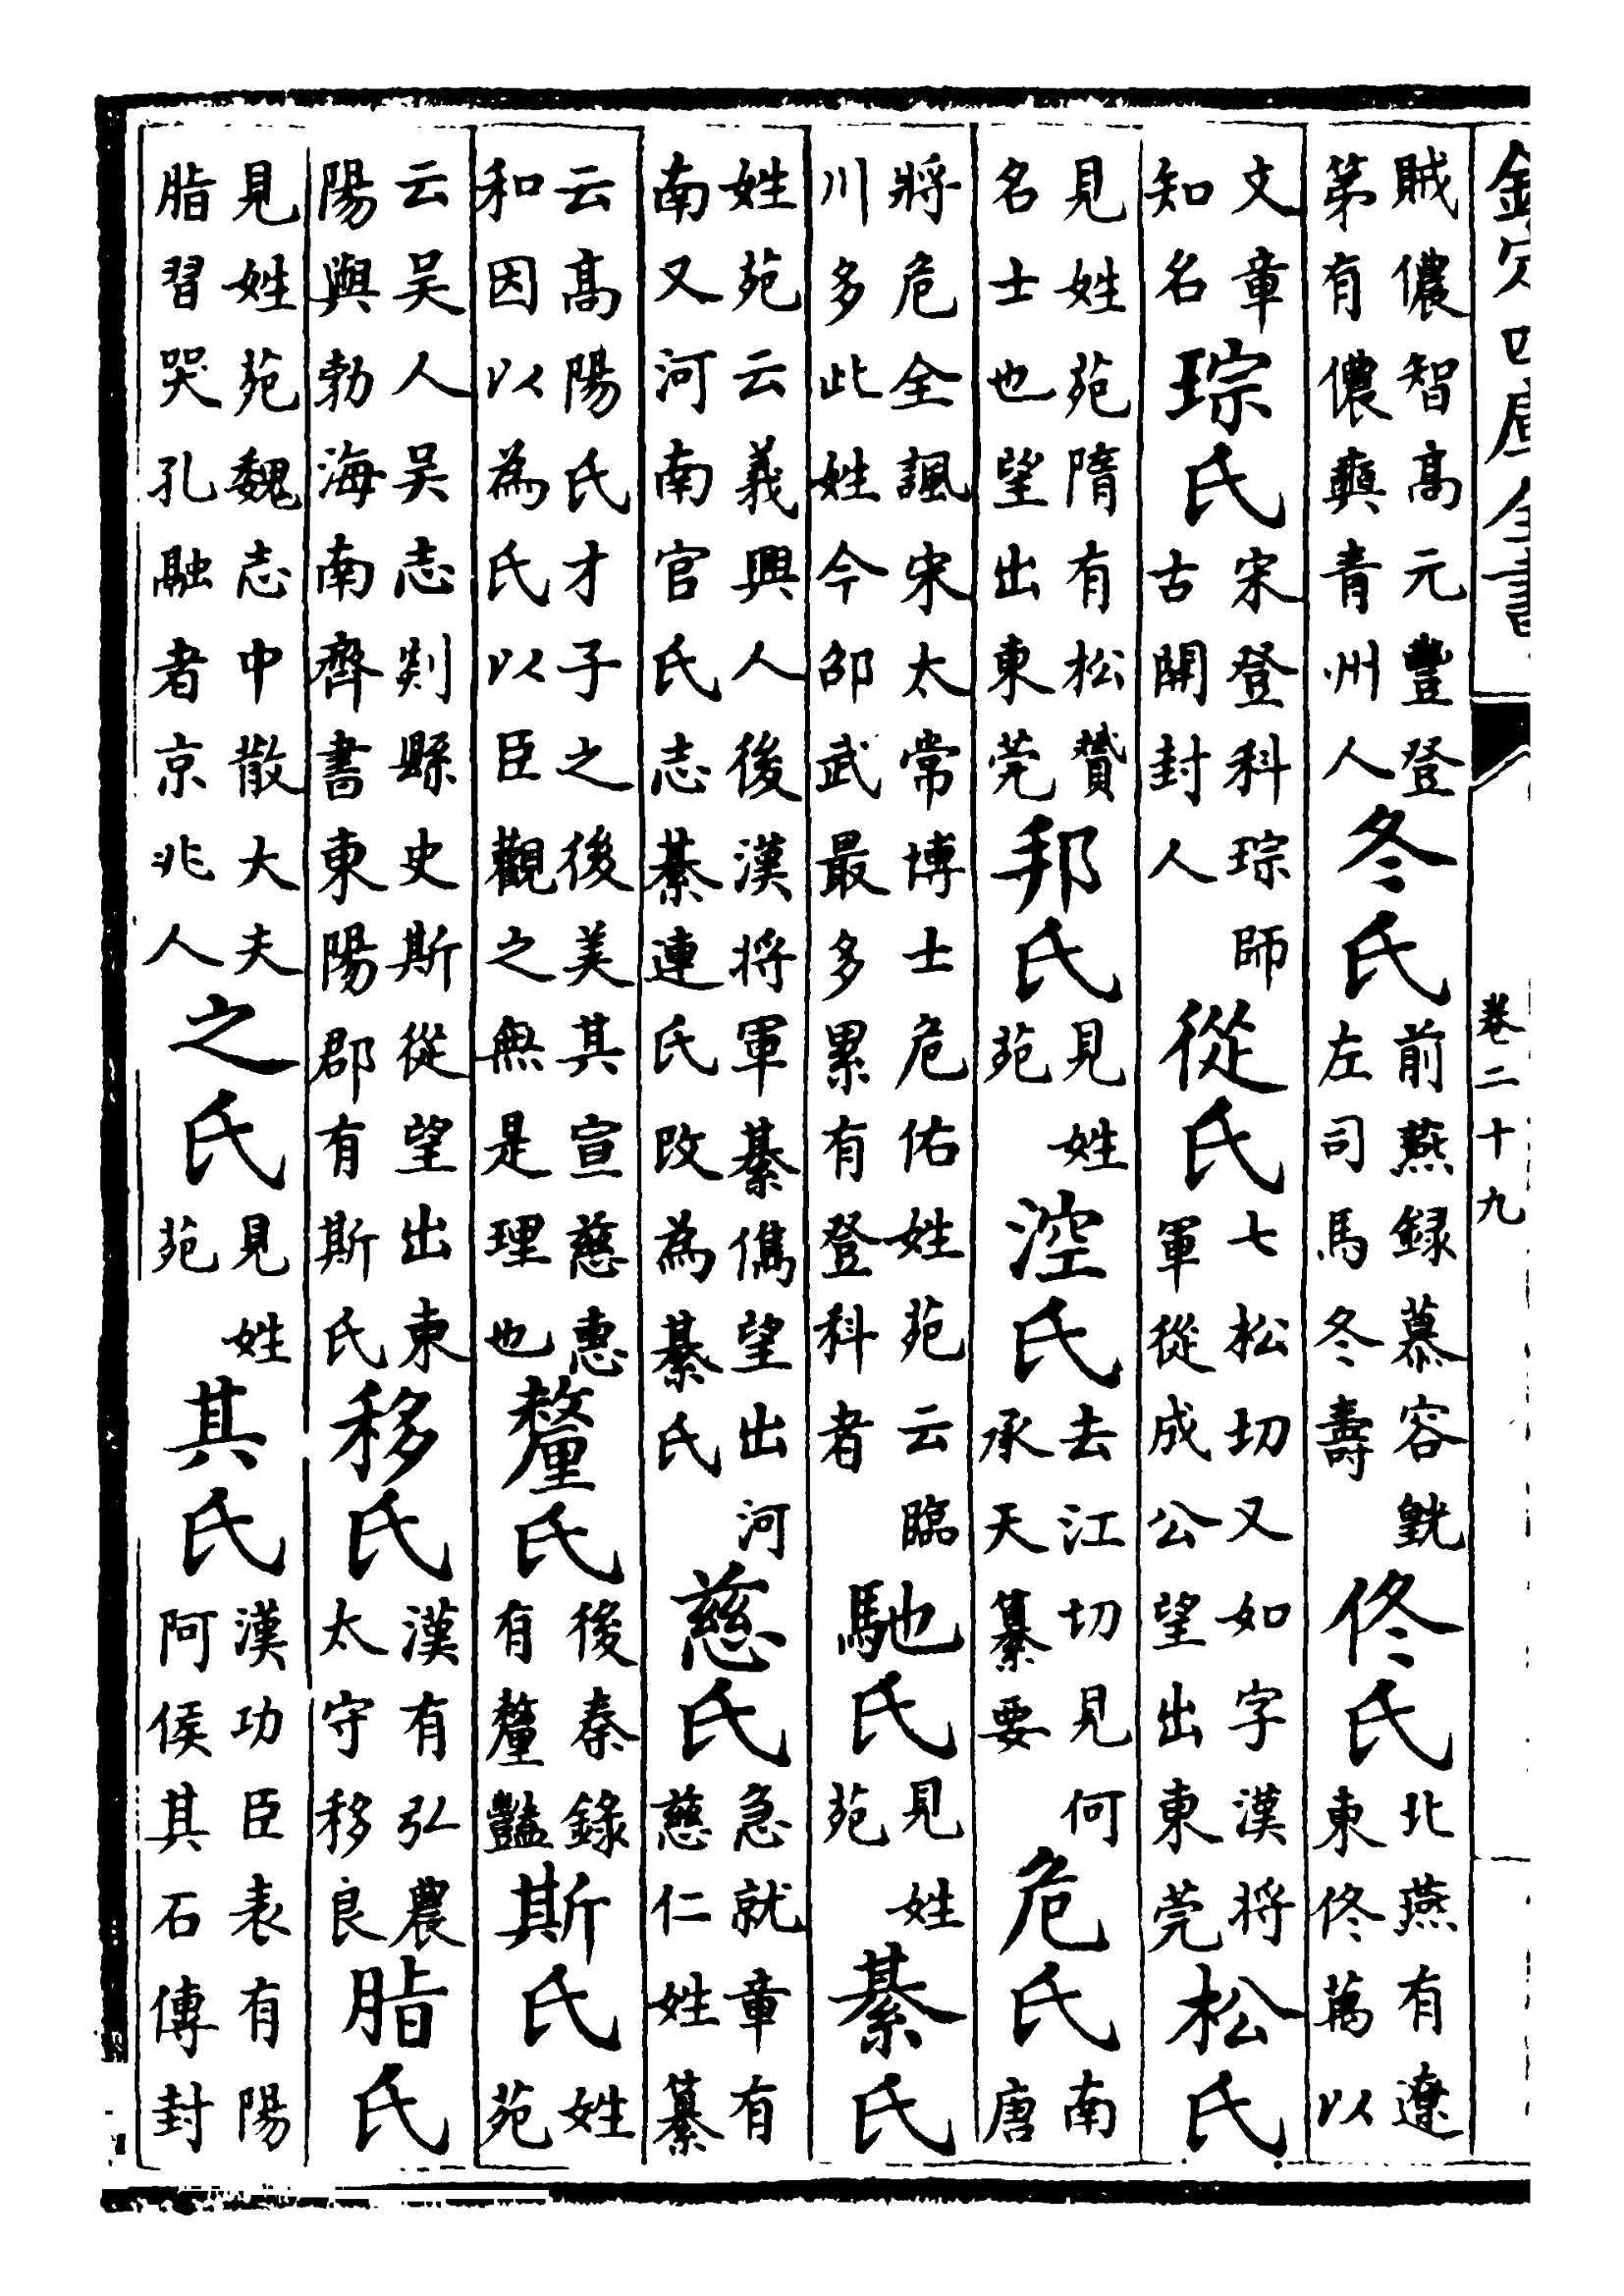 欽定四庫全書 卷二十九
賊儂智高元豐登第有儂青州人冬氏前燕録慕容皝左司馬冬壽佟氏北燕有遼東佟萬以
文章知名琮氏宋登科琮師古開封人從氏七松切又如字漢將軍從成公望出東莞松氏
見姓苑隋有松贇名士也望出東莞邦氏見姓苑涳氏去江切見何承天纂要危氏南唐
將危全諷宋太常博士危佑姓苑云臨川多此姓今邵武最多累有登科者馳氏見姓苑綦氏
姓苑云義興人後漢將軍綦儁望出河南又河南官氏志綦連氏改為綦氏慈氏急就章有慈仁姓纂
云高陽氏才子之後美其宣慈惠和因以為氏以臣觀之無是理也釐氏後秦錄有釐豔斯氏姓苑
云吴人吴志剡縣史斯從望出東陽與勃海南齊書東陽郡有斯氏移氏漢有弘農太守移良脂氏
見姓苑魏志中散大夫脂習哭孔融者京兆人之氏見姓苑其氏漢功臣表有陽阿侯其石傳封